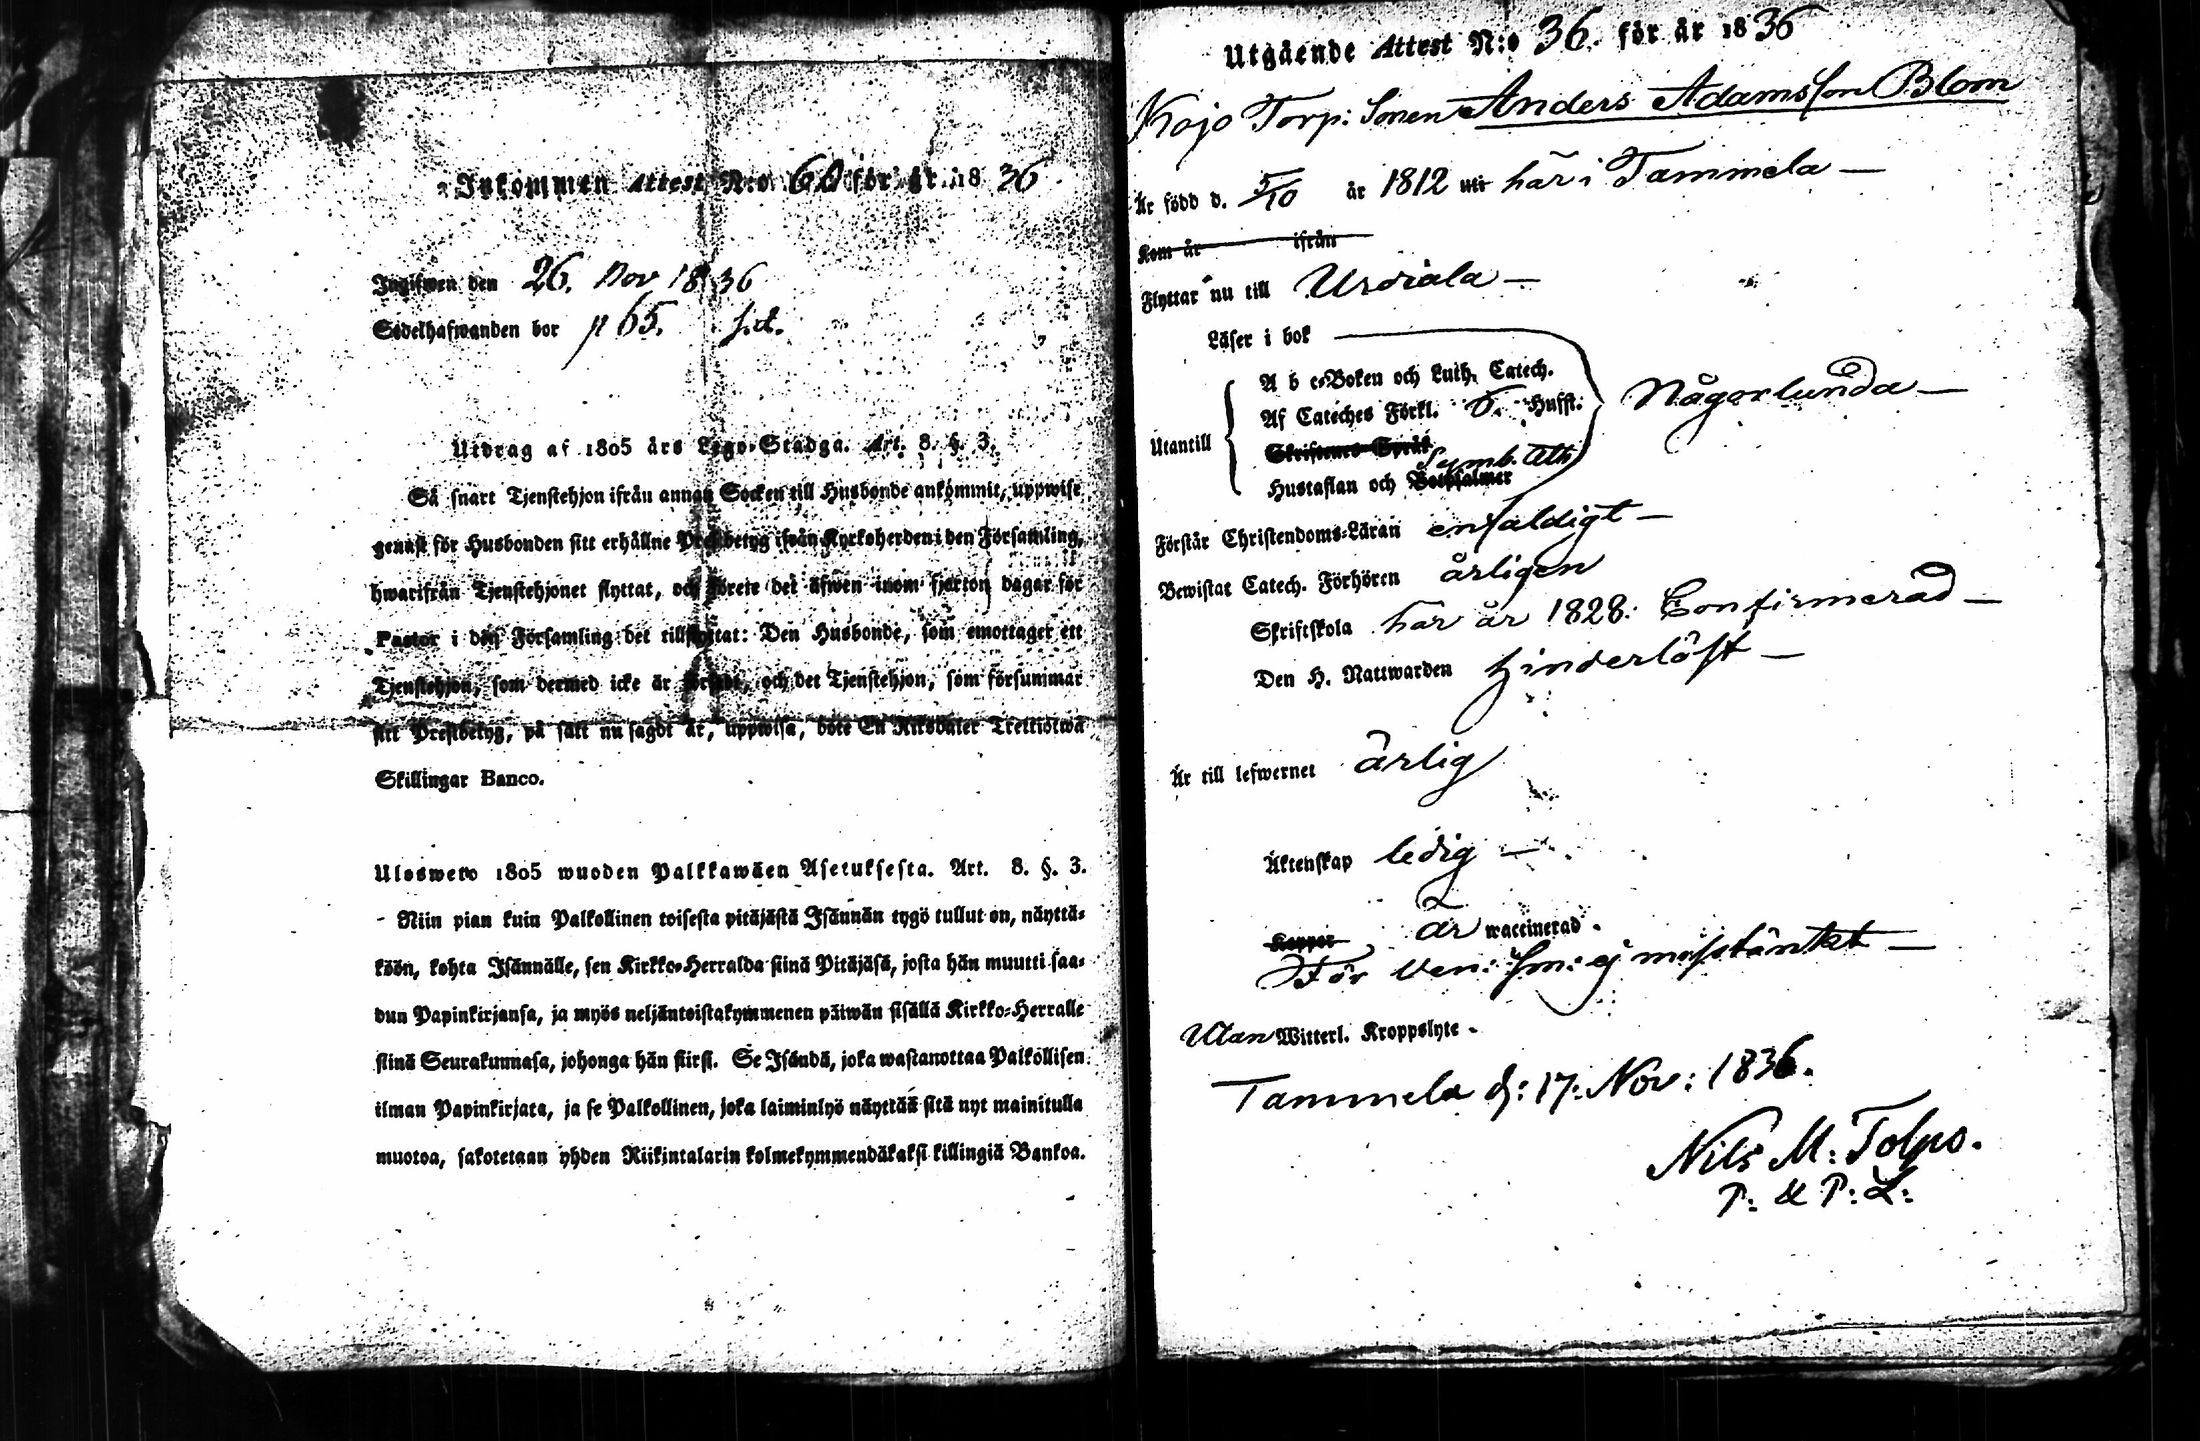 Inkommen Attest N:o 60 för år 18 36
Ingifwen den 26. Nov 1836
Sedelhafwanden bor p 65. sid.
Utdrag af 1805 års Lego-Stadga. Art. 8. §. 3.
Så snart Tjenstehjon ifrån annan Socken till Husbonde ankommit, uppwise
genast för Husbonden sitt erhållne Prestbetyg ifrån Kyrkoherden i den Församling,
hwarifrån Tjenstehjonet flyttat, och förete det äfwen inom fjorton dagar för
Pastor i den Församling det tillflyttat: Den Husbonde, som emottager ett
Tjenstehjon, som dermed icke är försedt, och det Tjenstehjon, som försummar
sitt Prestbetyg, på sätt nu sagdt är, uppwisa, böte En Riksdaler Trettiotwå
Skillingar Banco.
Ulosweto 1805 wuoden Palkkawäen Asetuksesta. Art. 8. §. 3.
Niin pian kuin Palkollinen toisesta pitäjästä Isännän tygö tullut on, näyttä-
köön, kohta Isännälle, sen Kirkko-Herralda siinä Pitäjäsä, josta hän muutti saa-
dun Papinkirjansa, ja myös neljäntoistakymmenen päiwän sisällä Kirkko-Herralle
siinä Seurakunnasa, johonga hän siirsi. Se Isändä, joka wastanottaa Palkollisen
ilman Papinkirjata, ja se Palkollinen, joka laiminlyö näyttää sitä nyt mainitulla
muotoa, sakotetaan yhden Riikintalarin kolmekymmendäkaksi killingiä Bankoa.
Utgående Attest N:o 36. för år 18 36
Kojo Torp: Sonen Anders Adamsson Blom
Är född d. 5/10 år 1812 uti här i Tammela —
Kom år ifrån
Flyttar nu till Urdiala —
Läser i bok
A b c-Boken och Luth. Catech.
Af Cateches Förkl. 5. Hufst: Någorlunda —
Utantill
Skriftenes Språk
Symb. Ath
Hustaflan och Botpsalmer
Förstår Christendoms-Läran enfaldigt —
Bewistat Catech. Förhören årligen
Skriftskola har år 1828: Confirmerad —
Den H. Nattwarden hinderlöst —
Är till lefwernet ärlig
Äktenskap ledig —
Koppor är waccinerad.
För Ven: Sm: ej misstänkt —
Utan Witterl. Kroppslyte.
Tammela d: 17: Nov: 1836.
Nils M: Tolpo.
P: & P: L: